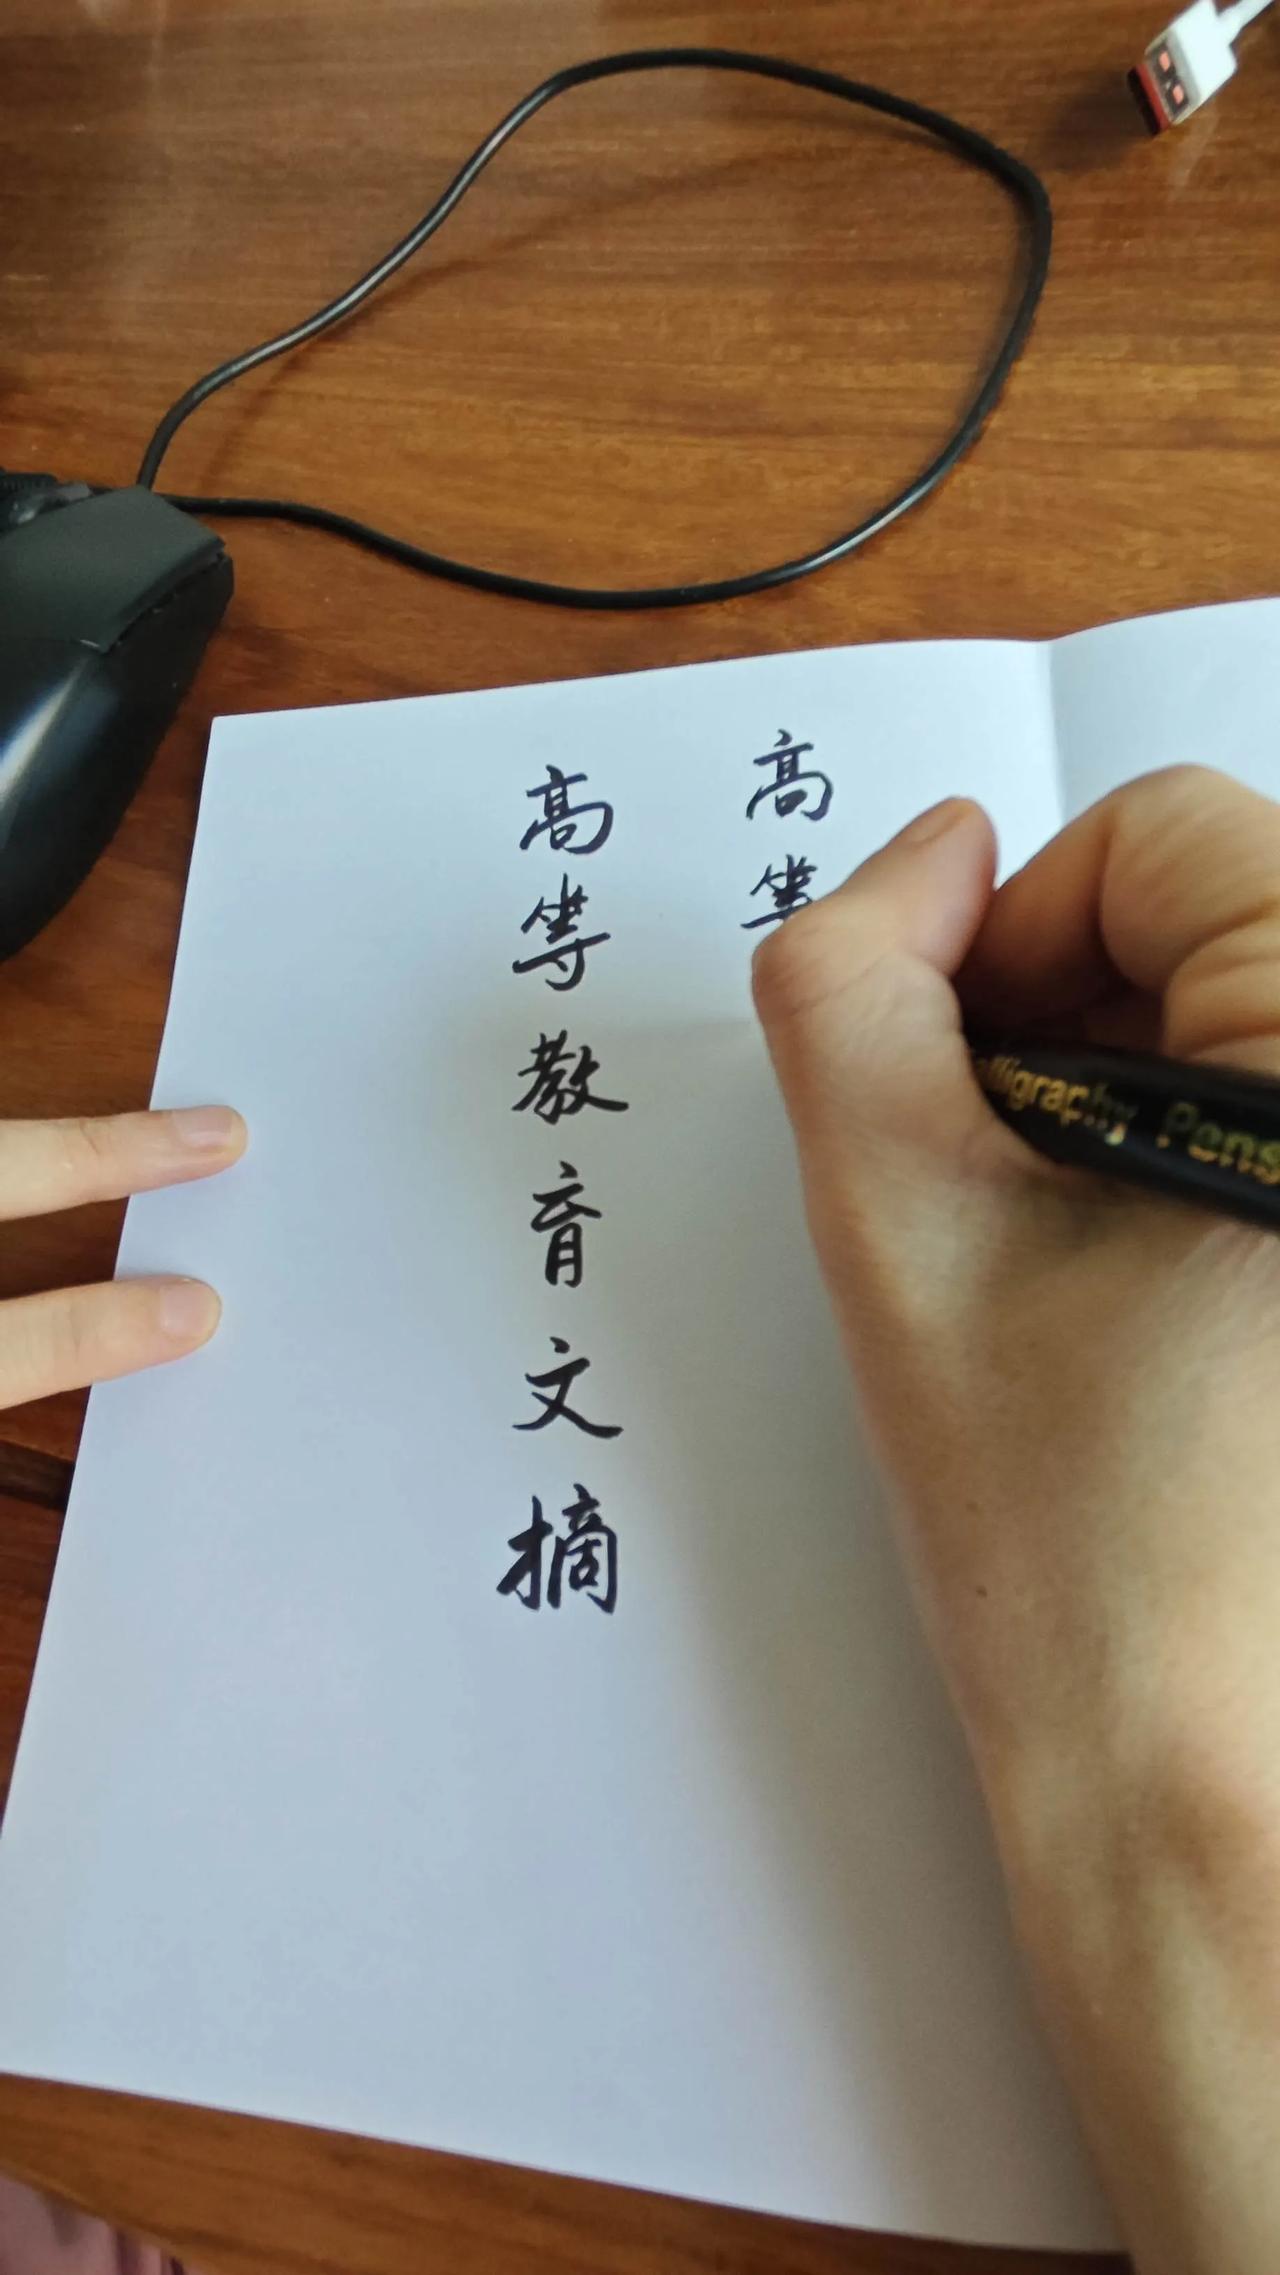 高等
高等教育文摘
Calligraphy Pens